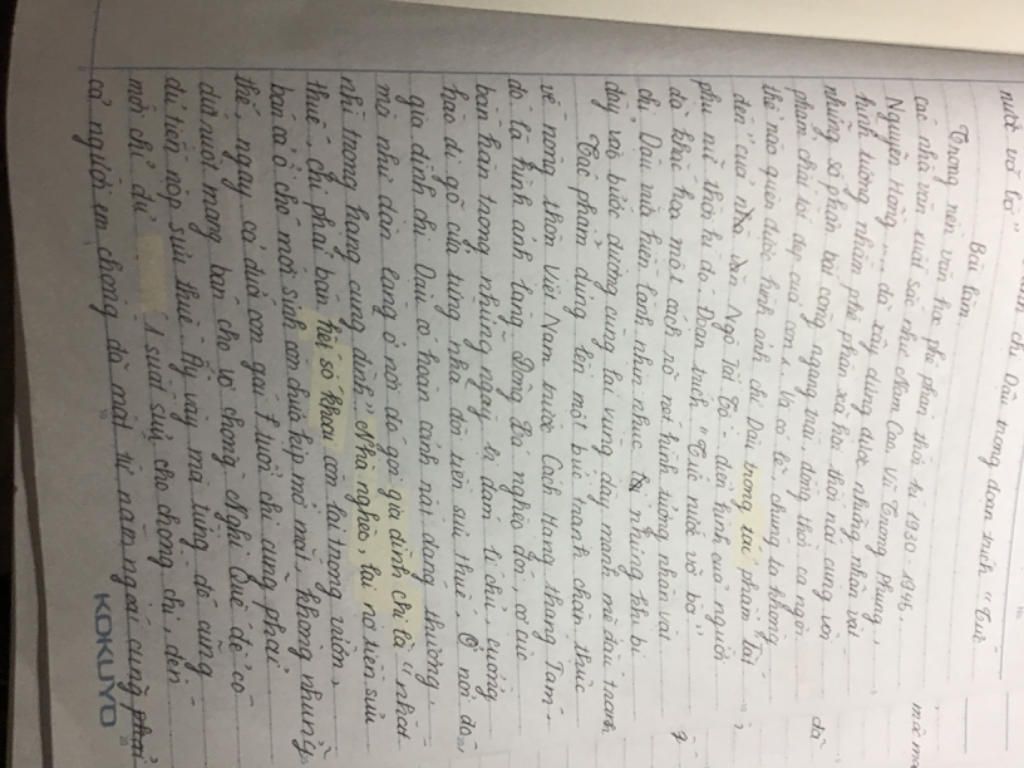 chị Dậu trong đoạn trích "Tức
nước vỡ bờ"
Bài làm
Trong nền văn học phê phán thời kì 1930 - 1945,
các nhà văn xuất sắc như Nam Cao, Vũ Trọng Phụng,
Nguyên Hồng.... đã xây dựng được những nhân vật
hình tượng nhằm phê phán xã hội thời nát cùng với
những số phận bất công ngang trái, đồng thời ca ngợi
phẩm chất tốt đẹp của con Và có lẽ, chúng ta không
thể nào quên được hình ảnh chị Dậu trong tác phẩm "Tắt
đèn" của nhà văn Ngô Tất Tố - điển hình của người
phụ nữ thời kì đó. Đoạn trích "Tức nước vỡ bờ"
đã khắc họa một cách rõ nét hình tượng nhân vật
chị Dậu vừa hiền lành nhịn nhục những khi bị
đẩy vào bước đường cùng lại vùng dậy mạnh mẽ đấu tranh
Tác phẩm dựng lên một bức tranh chân thực
về nông thôn Việt Nam trước Cách mạng tháng Tám -
đó là hình ảnh làng Đông Xá nghèo đói, cơ cực
bần hàn trong những ngày bị đám lí chủ, cường
hào đi gõ cửa từng nhà đòi tiền sưu thuế. Ở nơi đó
gia đình chị Dậu có hoàn cảnh nơi đang thương,
mọi như dân làng ở nơi đó gọi gia đình chị là "nhất
nhì trong hạng cùng đinh". Nhà nghèo, lại nợ tiền sưu
thuế, chị phải bán hết số khoai còn lại trong vườn,
bán cả ổ chó mới sinh còn chưa kịp mở mắt. Không những
thế, ngay cả đứa con gái 7 tuổi chị cũng phải
dứt ruột mang bán cho vợ chồng Nghị Quế để có
đủ tiền nộp sưu thuế. Ấy vậy mà từng đó cũng
mới chỉ đủ 1 suất sưu cho chồng chị, đến
cả người em chồng đã mất từ năm ngoái cũng phải
KOKUYO